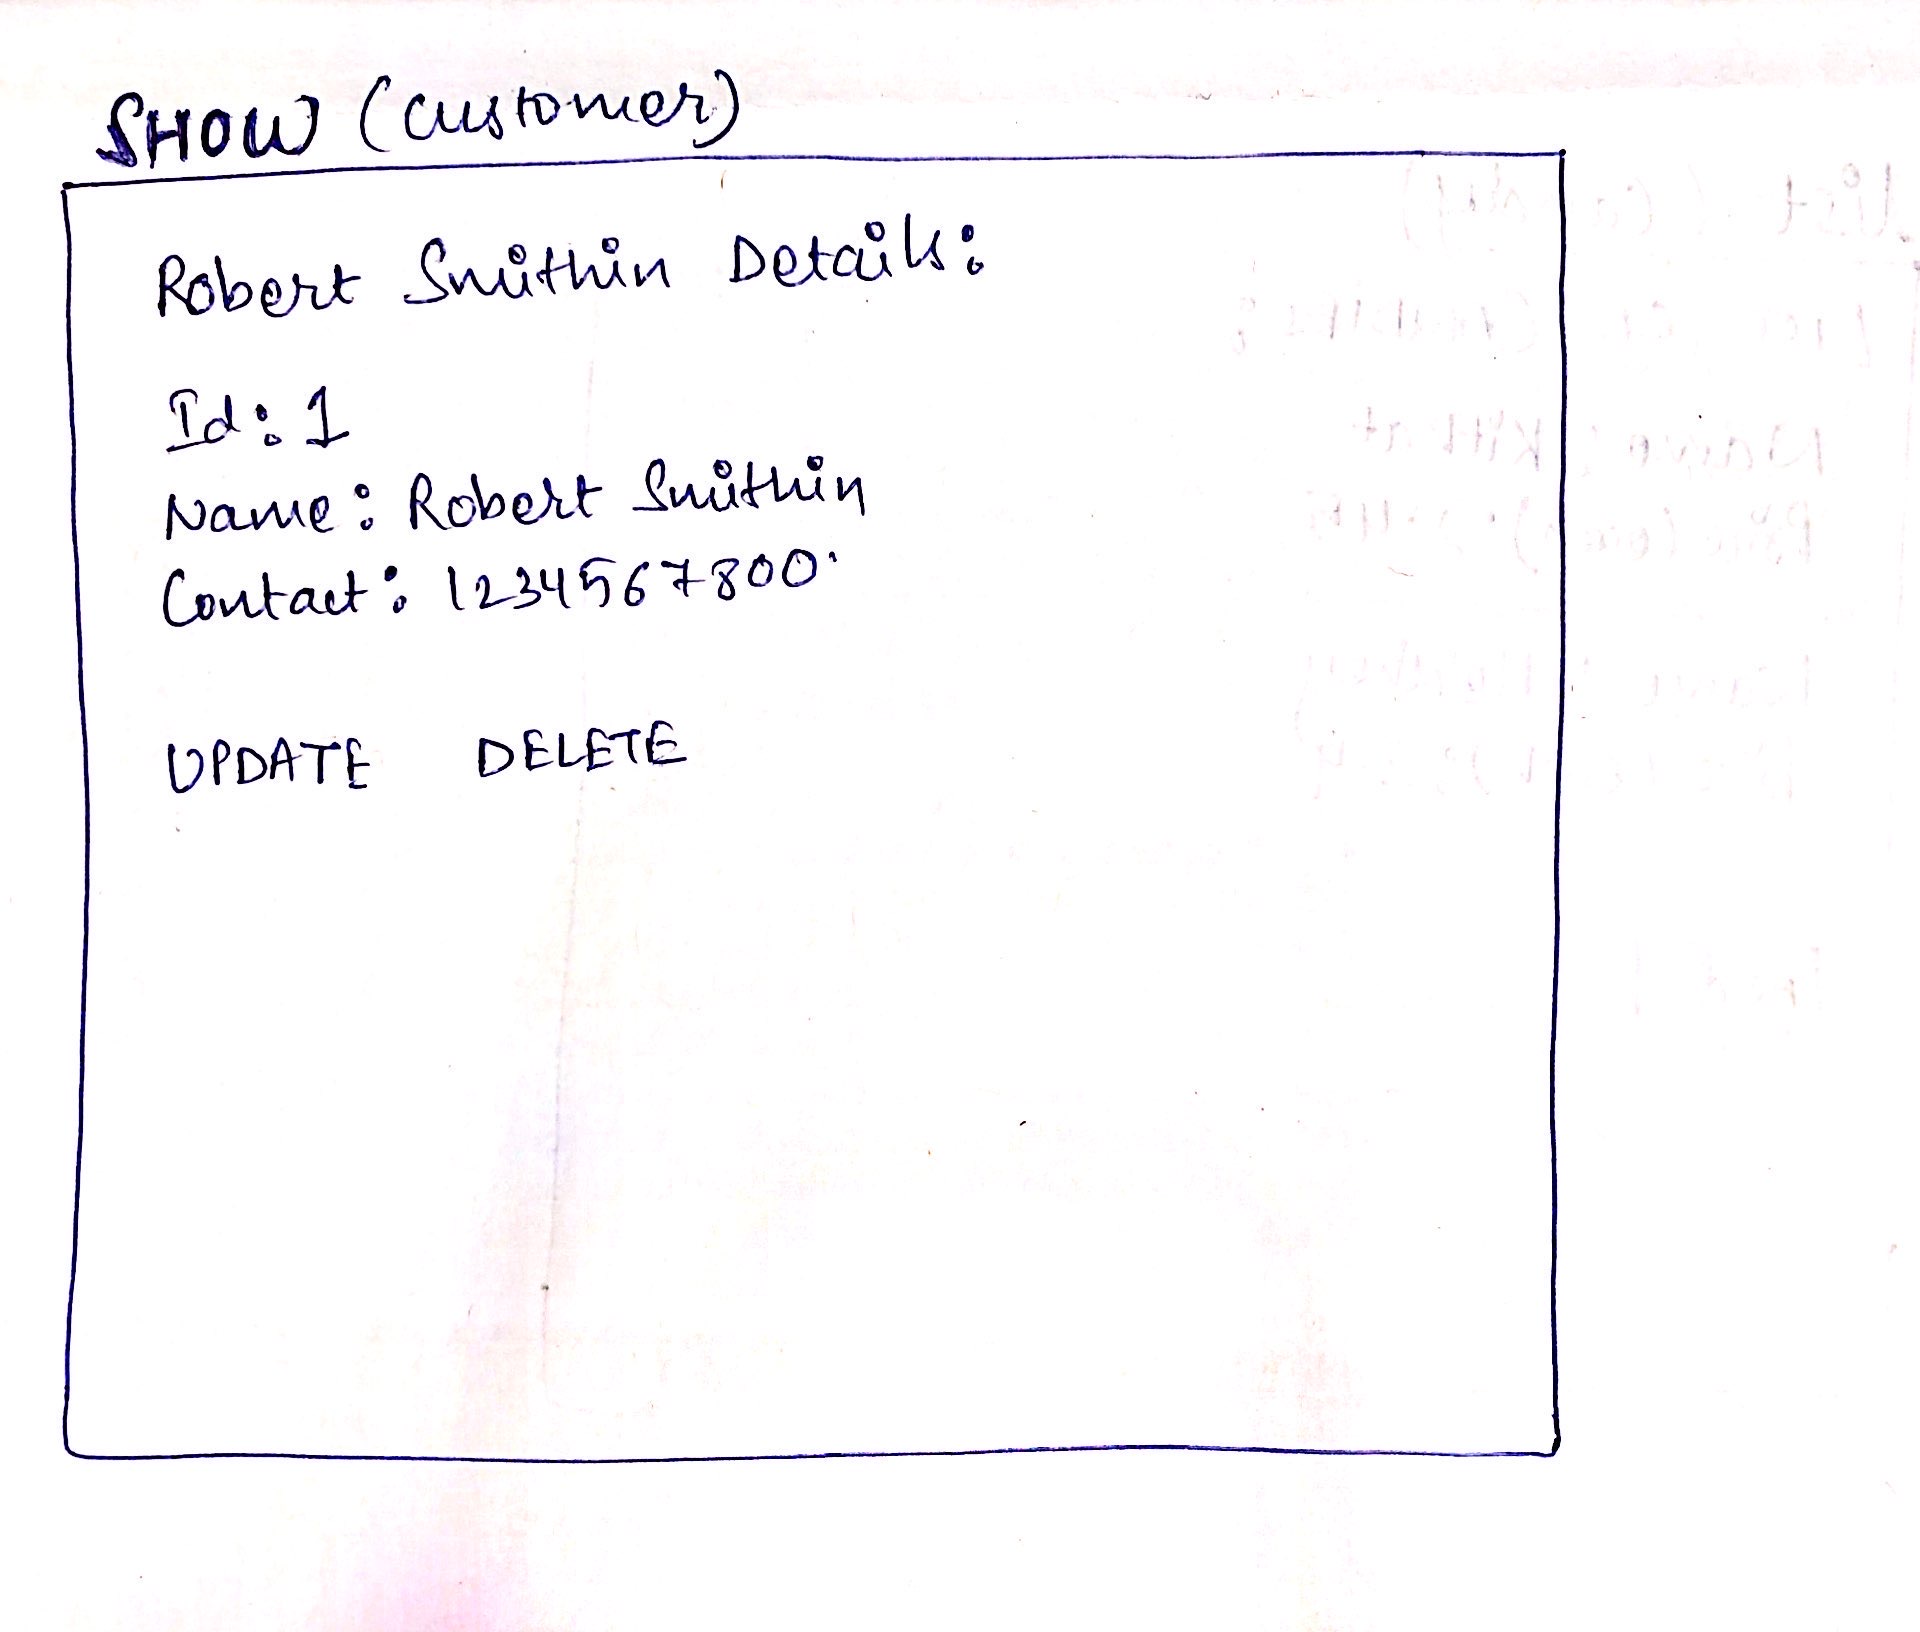 SHOW (customer)
Robert Smithin Details:
Id: 1
Name: Robert Smithin
Contact: 1234567800
UPDATE DELETE